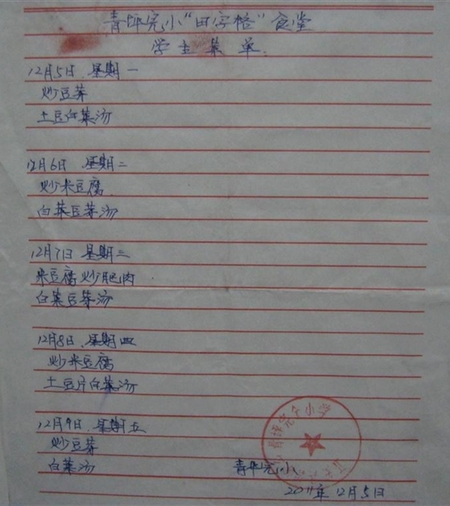 青华完小“田字格”食堂
学生菜单
12月5日 星期一
炒豆芽
土豆白菜汤
12月6日 星期二
炒米豆腐
白菜豆芽汤
12月7日 星期三
米豆腐炒肥肉
白菜豆芽汤
12月8日 星期四
炒米豆腐
土豆片白菜汤
12月9日 星期五
炒豆芽
白菜汤
青华完小
2011年12月5日
完全小学